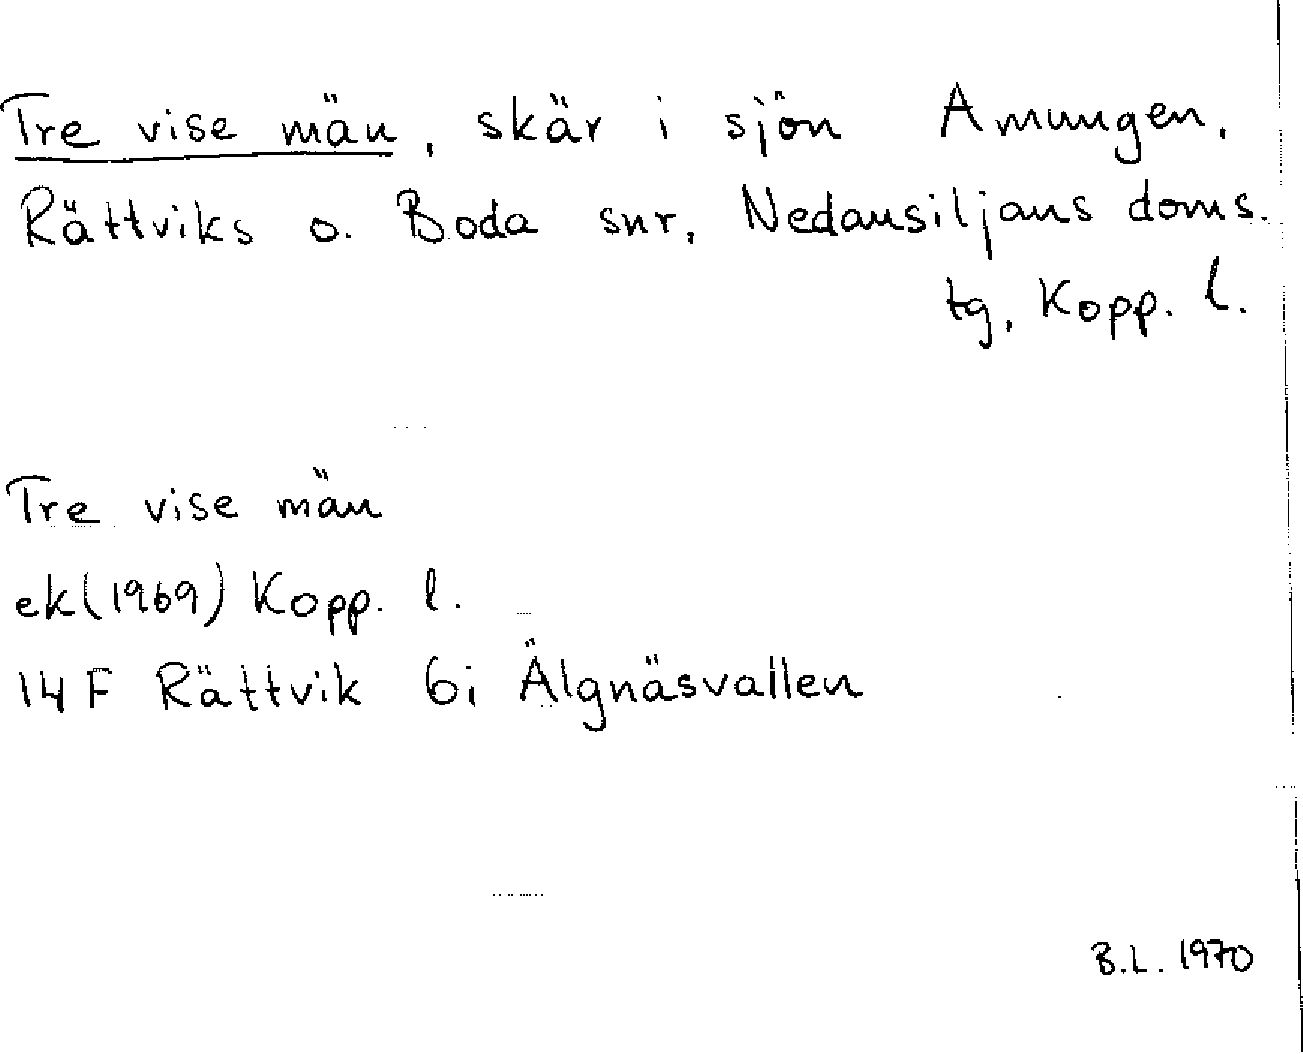 Tre vise män, skär i sjön Amungen,
Rättviks o. Boda snr, Nedansiljans doms.
tg, Kopp. l.
Tre vise män
ek(1969) Kopp. l.
14 F Rättvik 6i Älgnäsvallen
B.L. 1970